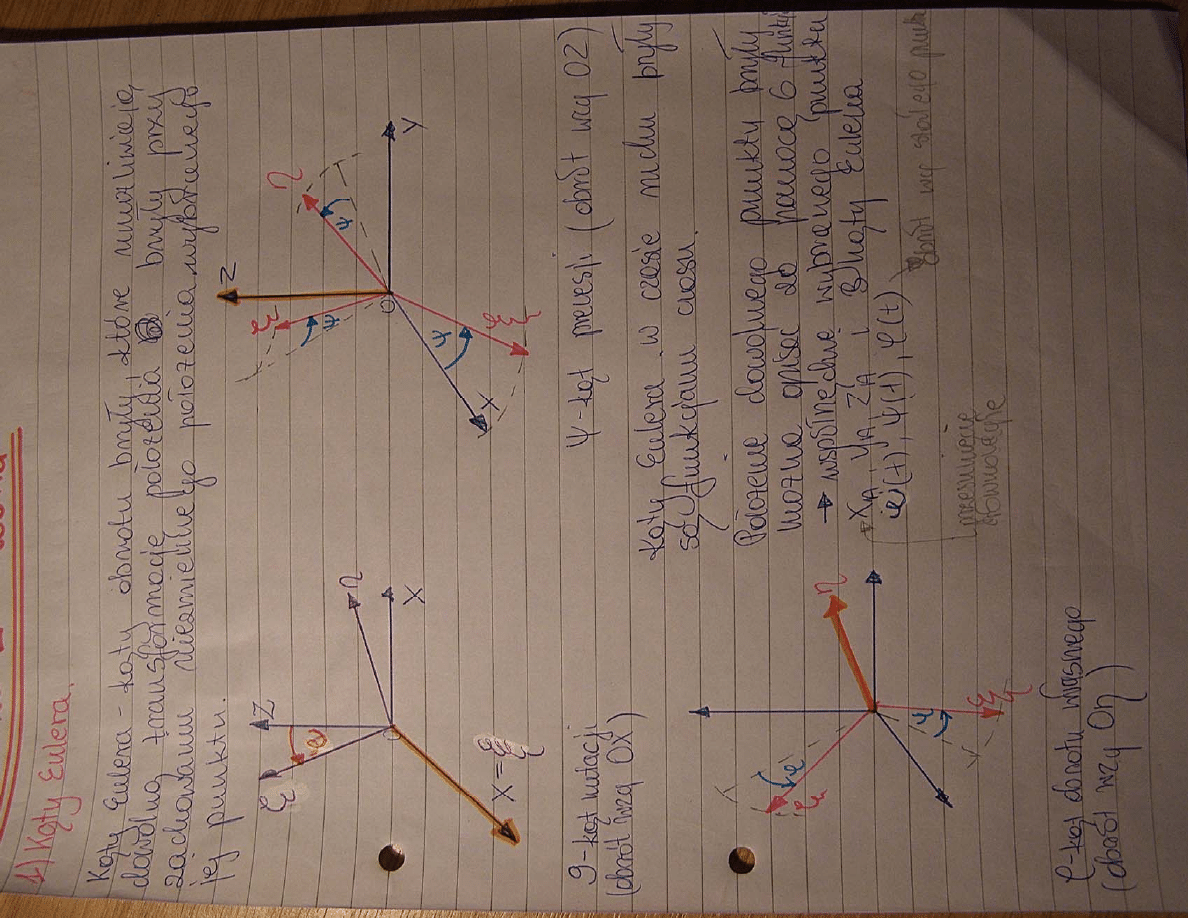 1) Kąty Eulera.
Kąty Eulera - kąty obrotu bryły, które umożliwiają
dowolną transformację położenia bryły przy
zachowaniu niezmiennego położenia wybranego
jej punktu.
ζ
Z
η
X
X = ξ
Z
ζ
ψ
η
ψ
O
Y
X
ψ
ξ
ϑ - kąt nutacji
(obrót wzg OX)
ψ - kąt precesji (obrót wzg OZ)
Kąty Eulera w czasie ruchu bryły
są funkcjami czasu.
Położenie dowolnego punktu bryły
można opisać za pomocą 6 funkcji
→ współrzędne wybranego punktu
XA, YA, ZA i 3 kąty Eulera
ψ(t), φ(t)
obrót wzg stałego punktu
przesunięcie
równoległe
η
φ
ζ
φ
ξ
φ - kąt obrotu własnego
(obrót wzg Oη)